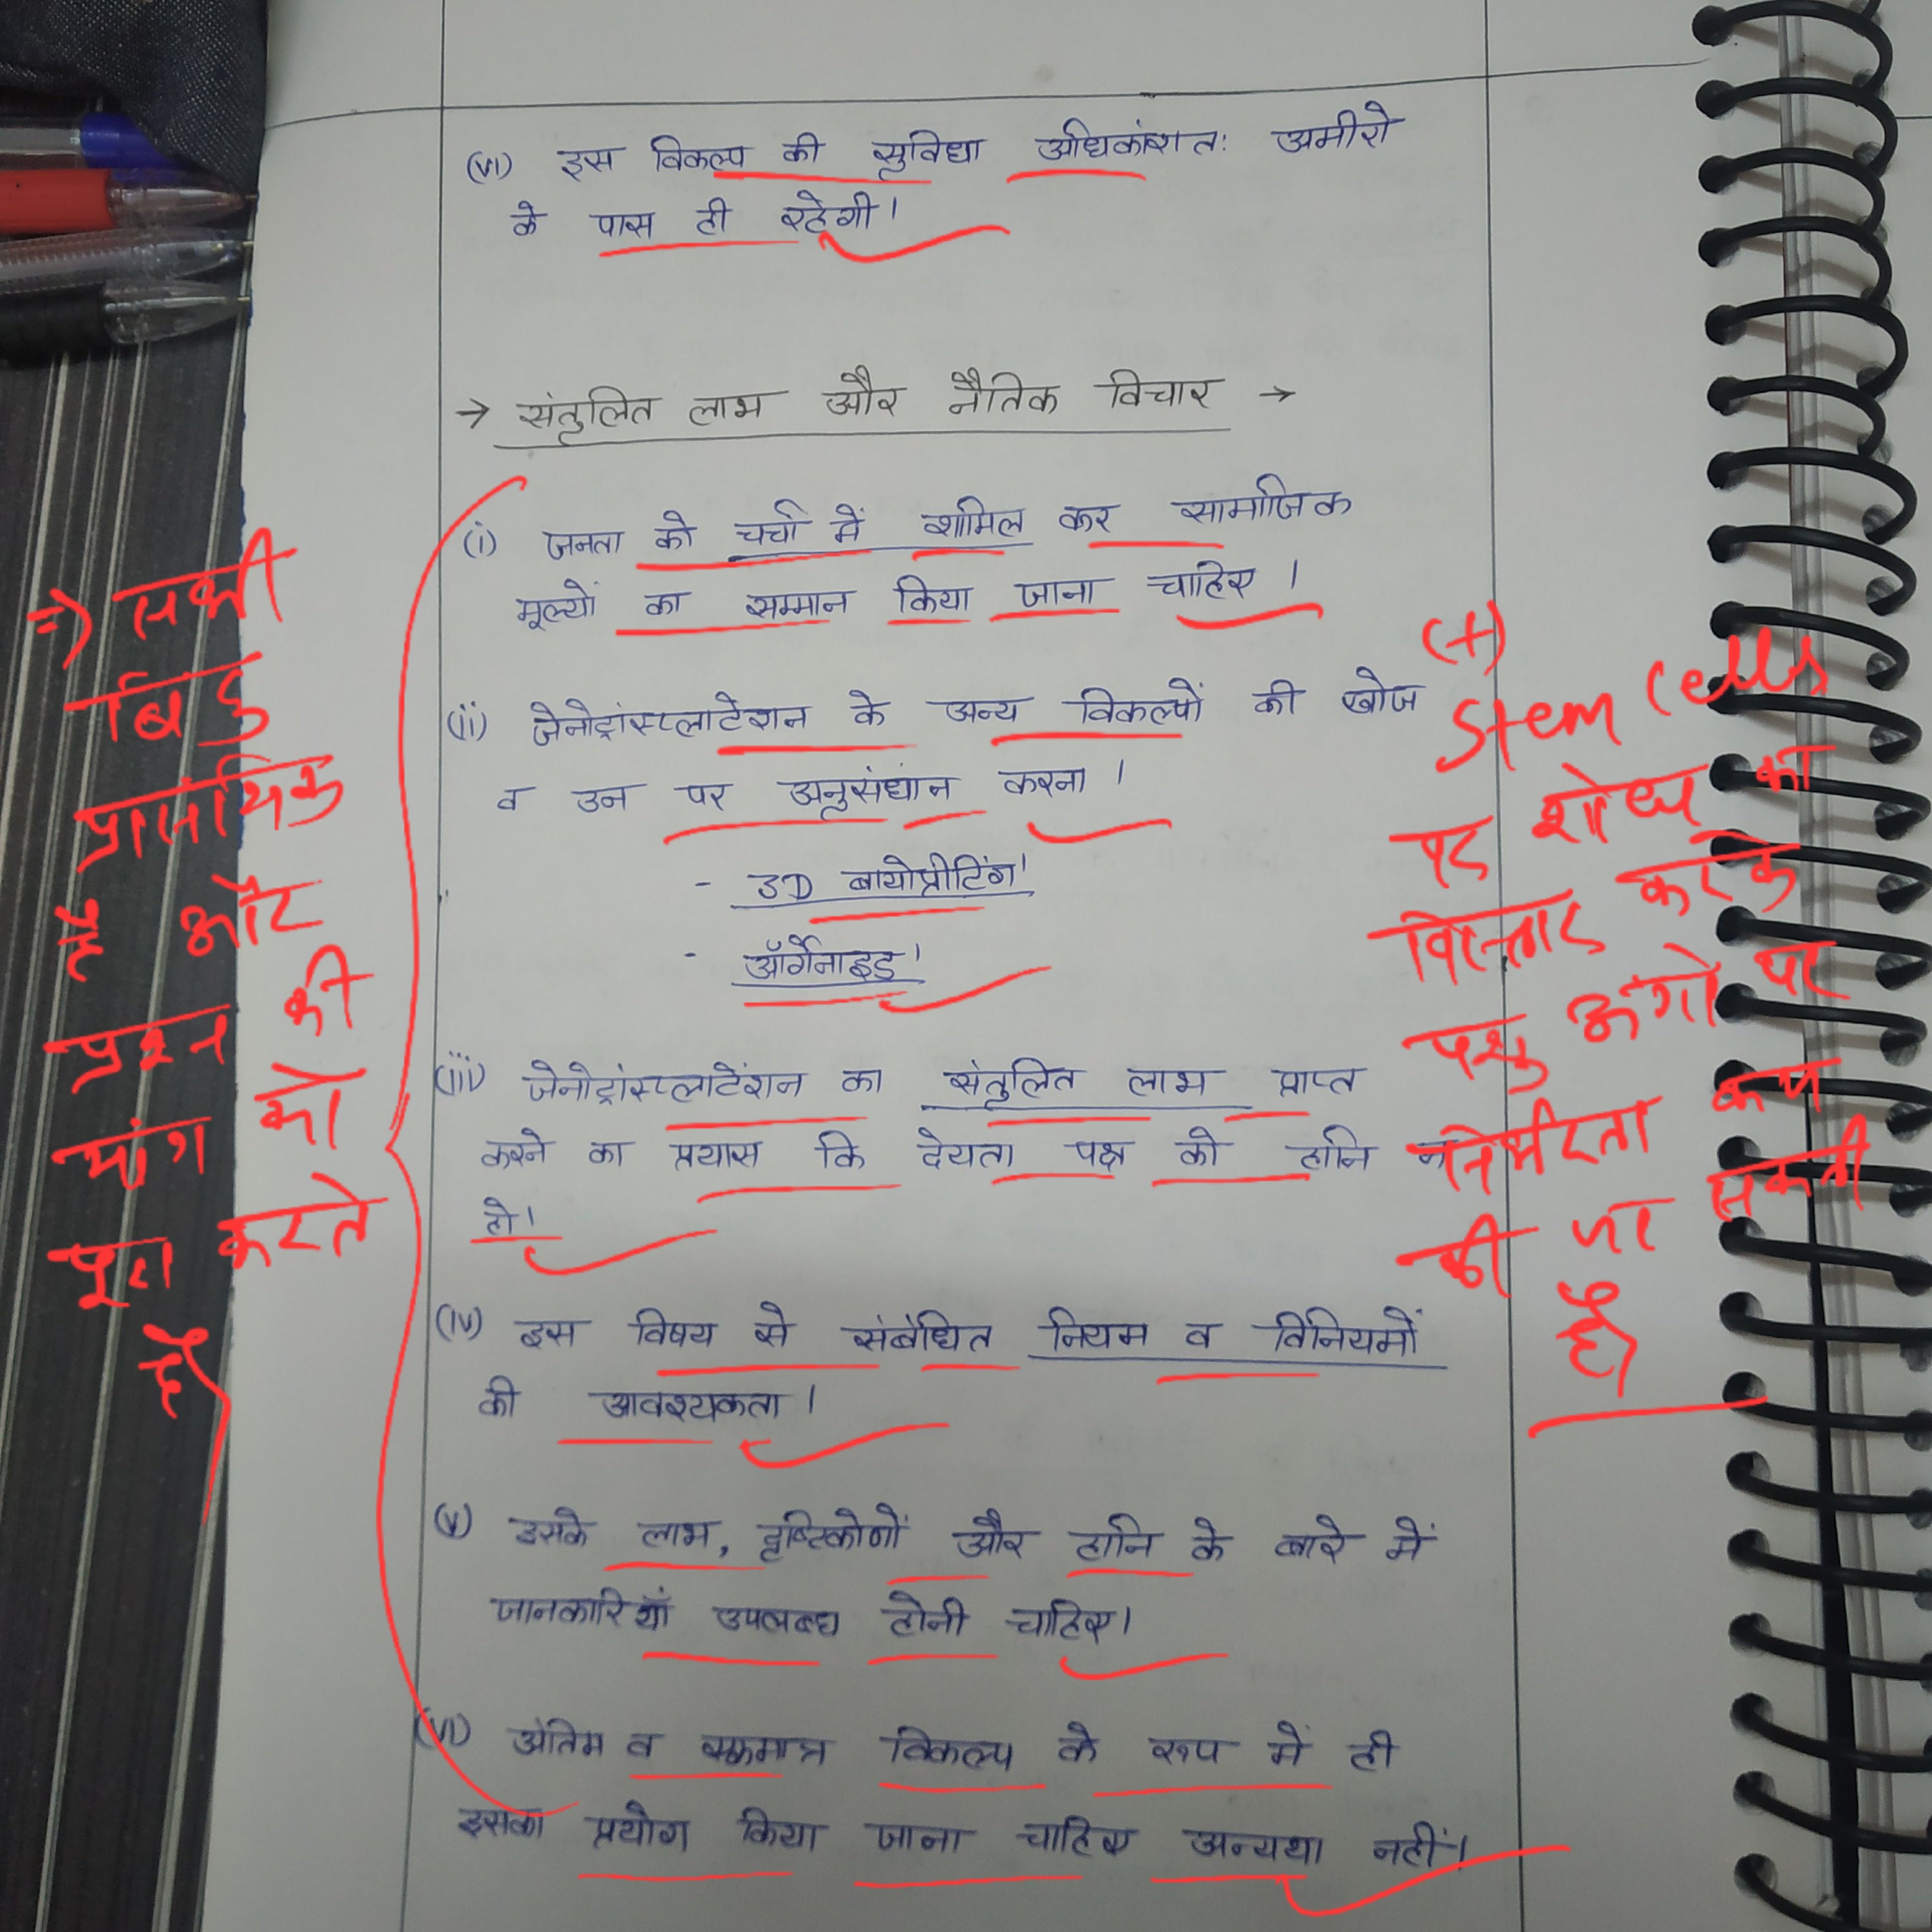 (vi) इस विकल्प की सुविधा अधिकांशतः अमीरो
के पास ही रहेगी।
→ संतुलित लाभ और नैतिक विचार →
(i) जनता को चर्चा में शामिल कर सामाजिक
मूल्यों का सम्मान किया जाना चाहिए।
(ii) जेनोट्रांस्प्लाटेशन के अन्य विकल्पों की खोज
व उन पर अनुसंधान करना।
- 3D बायोप्रीटिंग।
- ऑर्गेनाइड।
(iii) जेनोट्रांस्प्लाटेंशन का संतुलित लाभ प्राप्त
करने का प्रयास कि देयता पक्ष को हानि न
हो।
(iv) इस विषय से संबंधित नियम व विनियमों
की आवश्यकता।
(v) उसके लाभ, दृष्टिकोणों और हानि के बारे में
जानकारियाँ उपलब्ध होनी चाहिए।
(vi) अंतिम व एकमात्र विकल्प के रूप में ही
इसका प्रयोग किया जाना चाहिए अन्यथा नहीं।
=) सभी
बिंदु
प्रासंगिक
हैं और
प्रश्न की
मांग को
पूरा करते
हैं
(+)
Stem Cells
पर शोध का
विस्तार करके
पशु अंगों पर
निर्भरता कम
की जा सकती
है